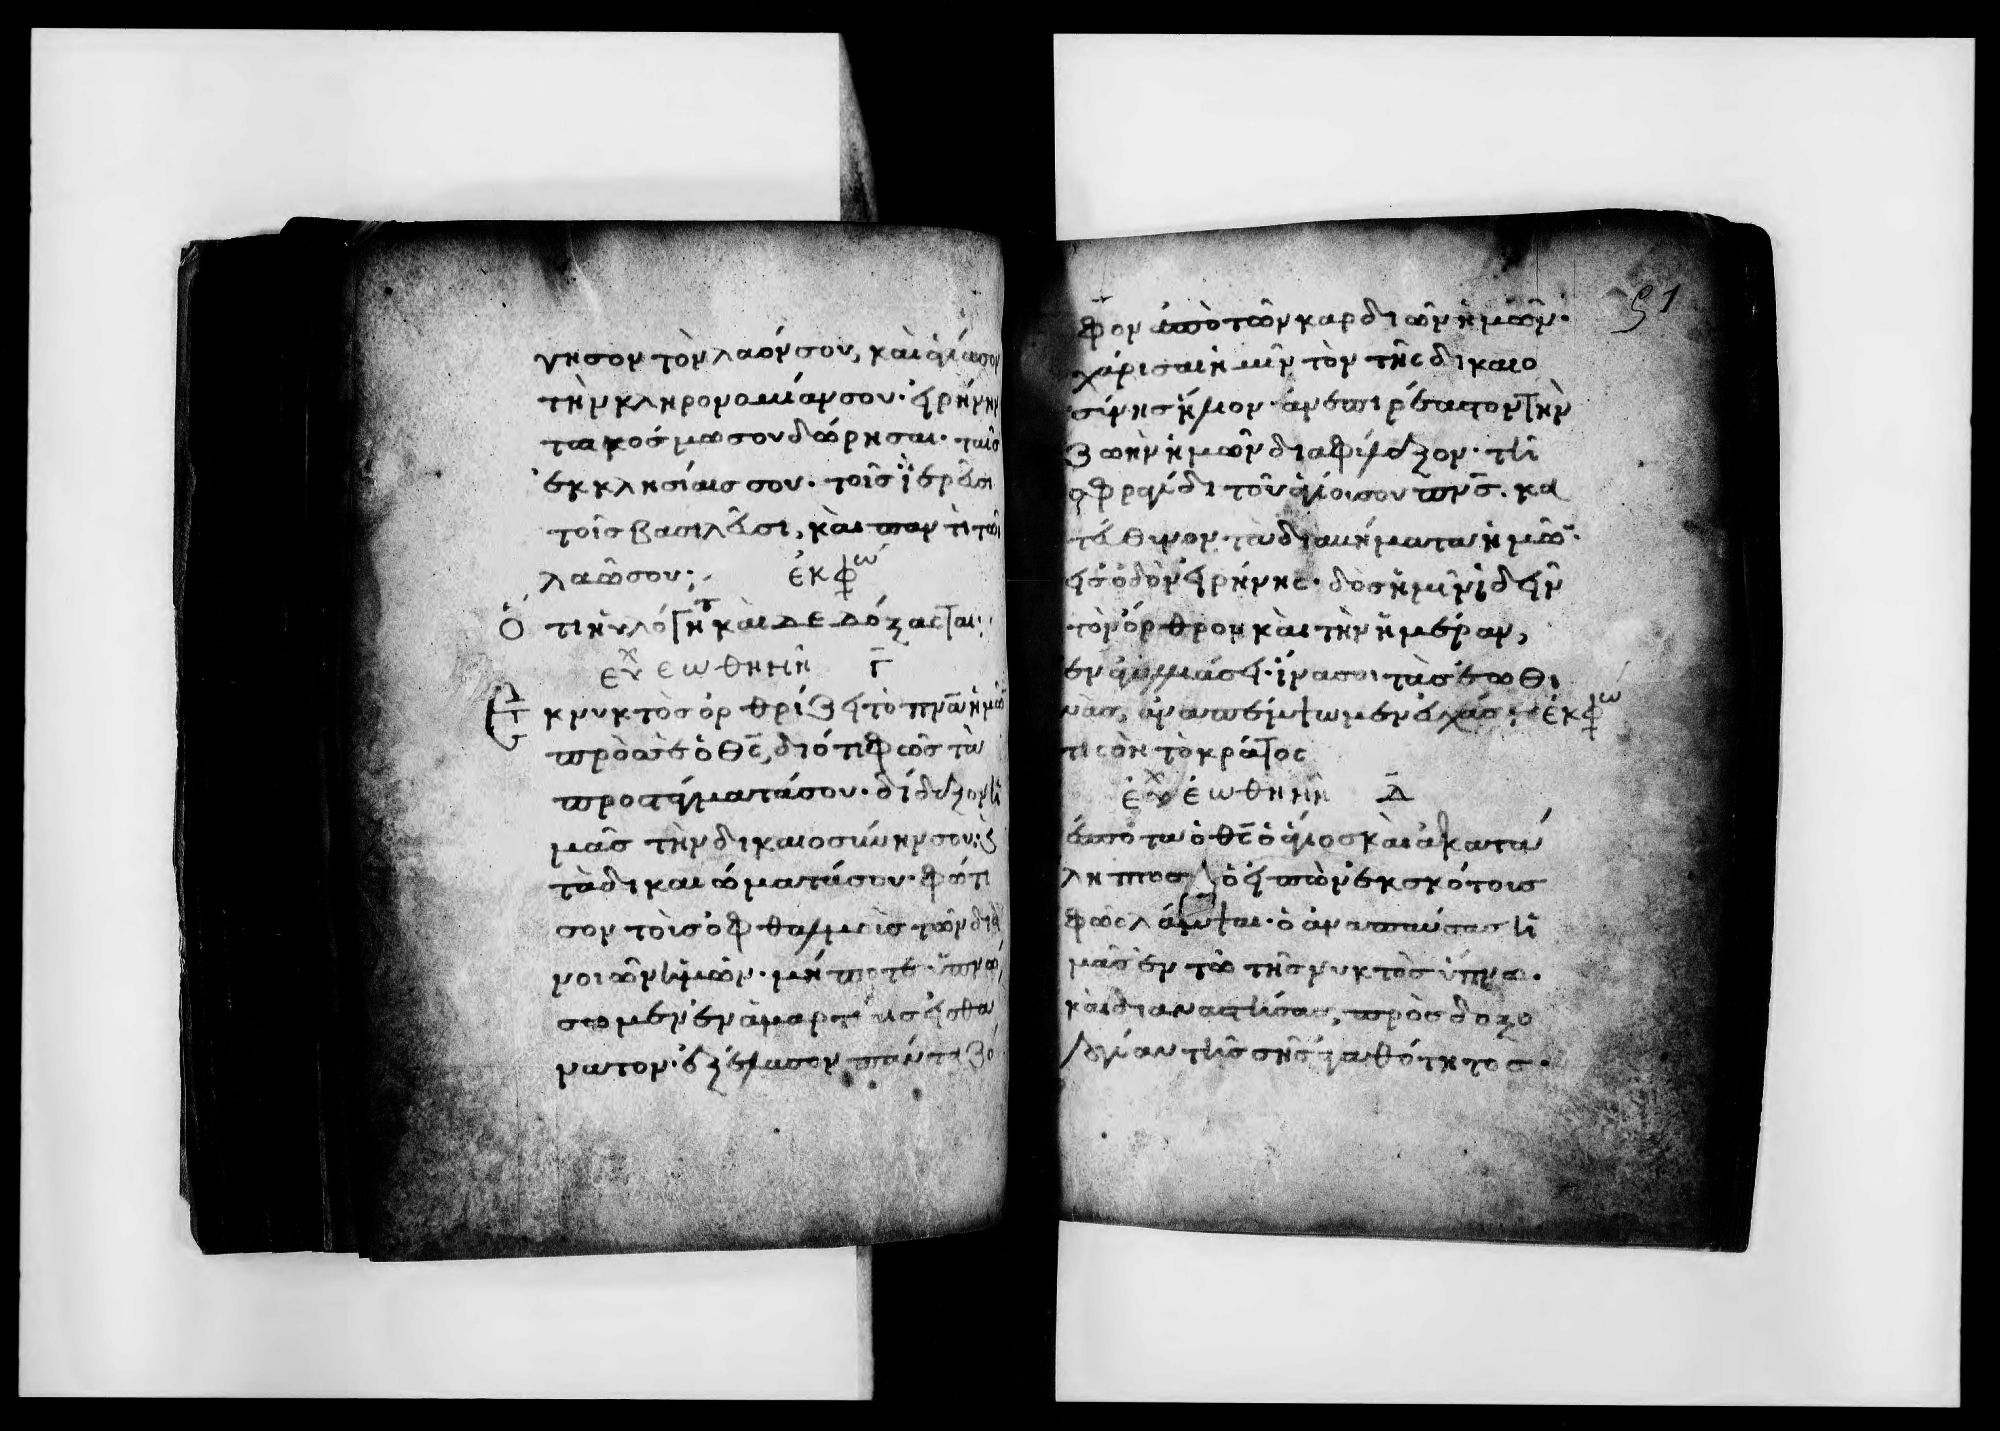 νησον τὸν λαόν σου, καὶ ἁγίασον
τὴν κληρονομίαν σου· εἰρήνην
τω κόσμω σου δώρησαι· ταῖς
ἐκκλησίαις σου· τοῖς ἱερεῦσι
τοῖς βασιλεῦσι, καὶ παντὶ τῶ
λαῶ σου· ἐκφω
Ὅτι ηὐλόγητ καὶ δεδόξασται·
εὐχ εωθηνὴ Γ
Ἐκ νυκτὸς ὀρθρίζει τὸ πνα ἡμῶ
πρὸς σὲ ὁ θς, διότι φῶς τὰ
προστάγματά σου· δίδαξον ἡ
μᾶς τὴν δικαιοσύνην σου· καὶ
τὰ δικαιώματά σου· φώτι
σον τοὺς ὀφθαλμοὺς τῶν δια
νοιῶν ἡμῶν· μήποτε ὑπνώ
σωμεν ἐν ἁμαρτίαις εἰς θά
νατον· ἐξέλασον πάντα ζό
91
φον ἀπὸ τῶν καρδιῶν ἡμῶν·
χάρισαι ἡμῖν τὸν τῆς δικαιο
σύνης ἥλιον· ἀνεπιρέαστον τὴν
ζωὴν ἡμῶν διαφύλαξον· τῆ
σφραγίδι τοῦ ἁγίου σου πνς. κα
τεύθυνον τὰ διαβήματα ἡμῶ·
εἰς ὁδὸν εἰρήνης· δὸς ἡμῖν ἰδεῖν
τὸν ὄρθρον καὶ τὴν ἡμέραν,
ἐν ἀγαλλιάσει· ἵνα σοι τὰς ἑωθι
νὰς, ἀναπέμψωμεν εὐχάς· ἐκφω
τι σὸν τὸ κράτος
εὐχ ἑωθηνὴ Δ
έσποτα ὁ θς ὁ ἅγιος καὶ ἀκατά
ληπτος ὁ εἰπὼν ἐκ σκότους
φῶς λάμψαι· ὁ ἀναπαύσας ἡ
μᾶς ἐν τῶ τῆς νυκτὸς ὕπνω·
καὶ διαναστήσας, πρὸς δοξο
λογίαν τῆς σῆς ἀγαθότητος·